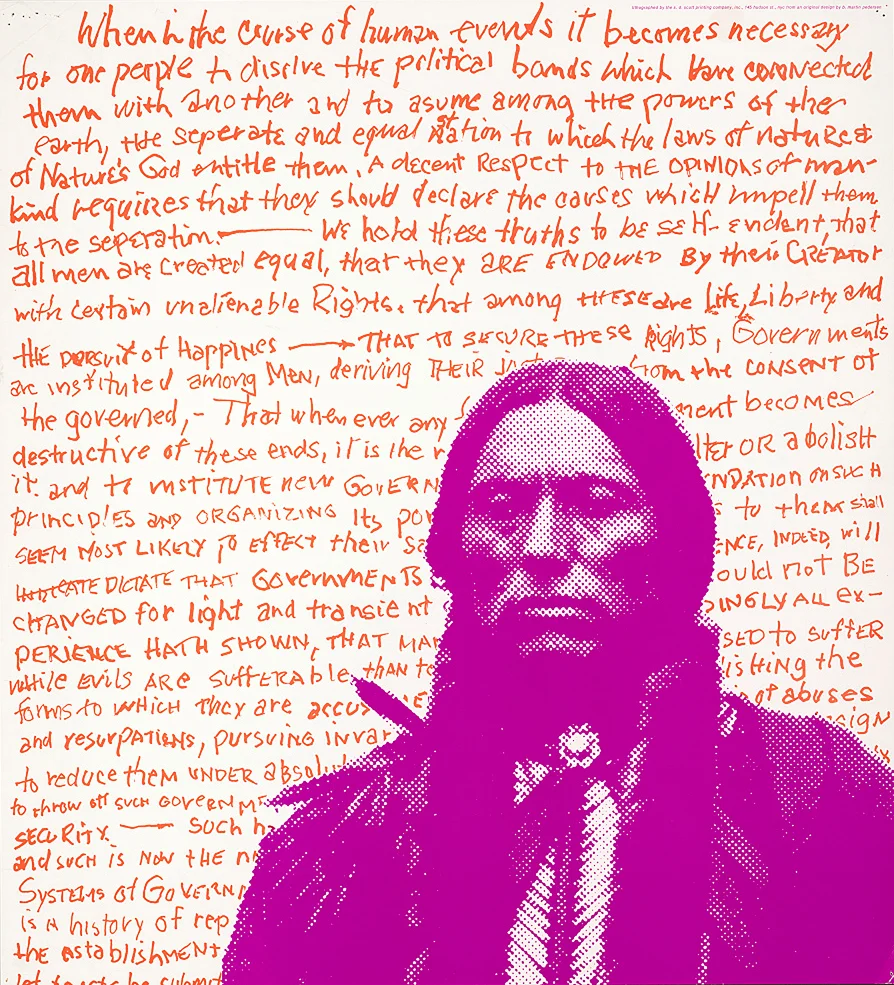 lithographed by the s. d. scott printing company, inc., 145 hudson st., nyc from an original design by b. martin pedersen
When in the course of human events it becomes necessary
for one people to disolve THE political bonds which have connected
them with another and to asume among the powers of the
earth, the seperate and equal station to which the laws of nature &
of Nature's God entitle them, A decent Respect to THE OPINIONS of man-
kind requires that they should declare the causes which impell them
to the seperation. — We hold these truths to be self-evident, that
all men are created equal, that they ARE ENDOWED By their CREATOR
with certain unalienable Rights. that among THESE are Life, Liberty and
tHE pursuit of Happines — THAT TO SECURE THESE Rights, Governments
are instituted among MEN, deriving THEIR just from the CONSENT of
the governed, - That when ever any ment becomes
destructive of these ends, it is the r lter OR abolish
it. and to INSTITUTE new GOVERN NDATION on SUCH
principles AND ORGANIZING Its po s to them shall
SEEM MOST LIKELY TO EFFECT their Sa ENCE, INDEED, will
DICTATE THAT GovernMENTS ould not BE
cHANGED for light and transient INGLY ALL Ex-
PERIENCE HATH SHOWN, THAT MAN SED to suffER
while EvILS ARE SUffERAble, than to ishing the
forms to wHICH they are accus of abuses
and resurpATIONS, pursuing invar esign
to reduce them UNDER absolu
to throw off SUCH GOVERNME
SECURITY — Such h
and SUCH is NOW tHE n
SYSTEMS of GOVERN
is A history of rep
the establishMENT
let facts be submit